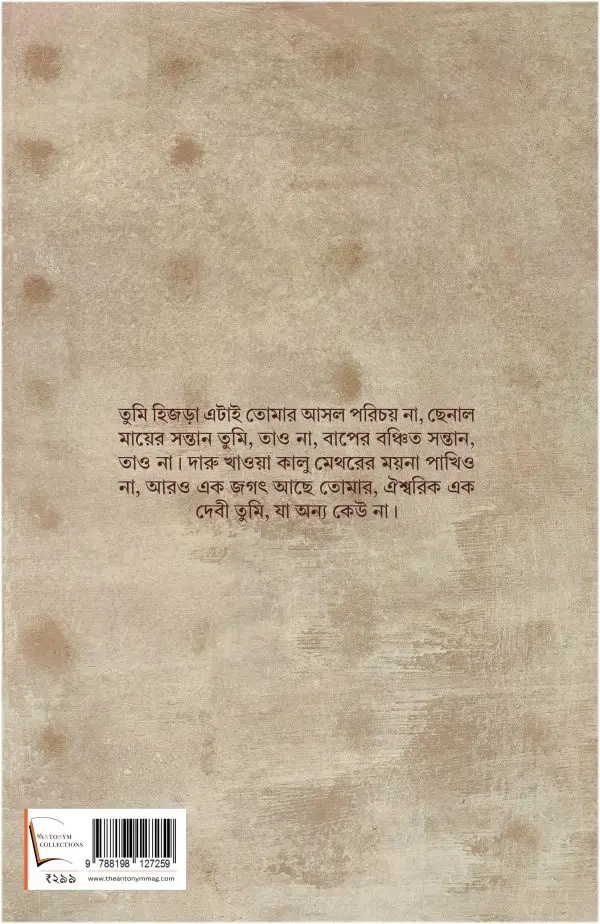 তুমি হিজড়া এটাই তোমার আসল পরিচয় না, ছেনাল
মায়ের সন্তান তুমি, তাও না, বাপের বঞ্চিত সন্তান,
তাও না। দারু খাওয়া কালু মেথরের ময়না পাখিও
না, আরও এক জগৎ আছে তোমার, ঐশ্বরিক এক
দেবী তুমি, যা অন্য কেউ না।
ANTONYM
COLLECTIONS
9 788198 127259
₹২৯৯
www.theantonymmag.com